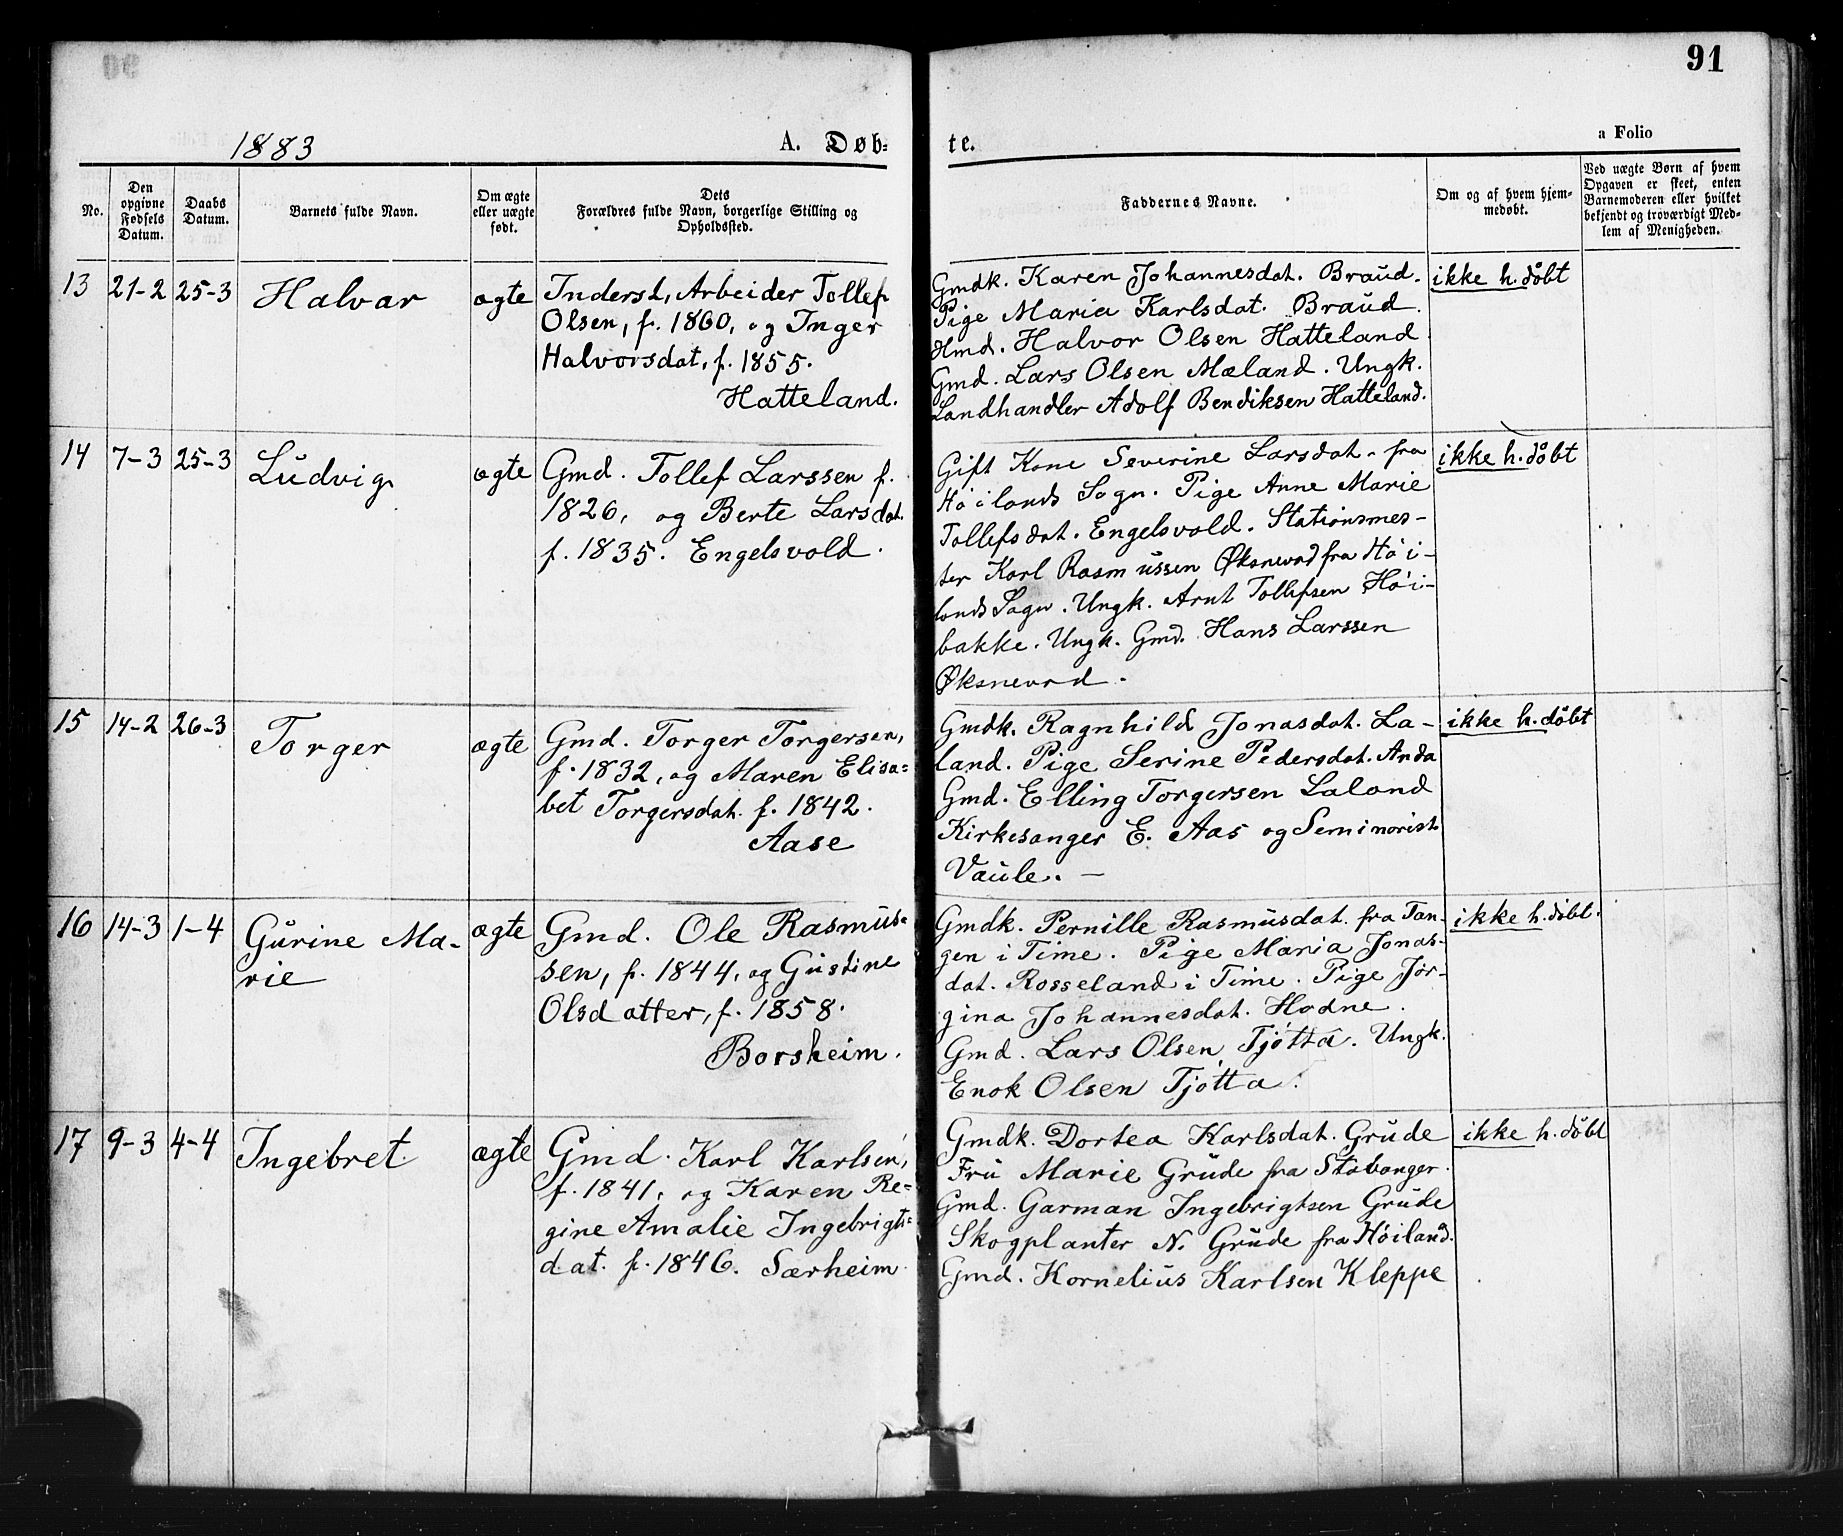 91
1883
A. Døb-
te.
a Folio
No.
Den
opgivne
Fødsels
Datum.
Daabs
Datum.
Barnets fulde Navn.
Om ægte
eller uægte
født.
Dets
Forældres fulde Navn, borgerlige Stilling og
Opholdssted.
Faddernes Navne.
Om og af hvem hjem-
medøbt.
Ved uægte Børn af hvem
Opgaven er skeet, enten
Barnemoderen eller hvilket
bekjendt og troværdigt Med-
lem af Menigheden.
13
21-2
25-3
Halvar
ægte
Inderst, Arbeider Tollef
Olsen, f. 1860, og Inger
Halvorsdat, f. 1855.
Hatteland.
Gmdk. Karen Johannesdat. Braud.
Pige Maria Karlsdat. Braud.
Hmd. Halvor Olsen Hatteland
Gmd. Lars Olsen Mæland. Ungk.
Landhandler Adolf Bendiksen Hatteland.
ikke h. døbt
14
7-3
25-3
Ludvig
ægte
Gmd. Tollef Larssen f.
1826, og Berte Larsdat.
f. 1835. Engelsvold.
Gift Kone Severine Larsdat. fra
Høilands Sogn. Pige Anne Marie
Tollefsdat. Engelsvold. Stationsmes-
ter Karl Rasmussen Øksnevad fra Høi-
lands Sogn. Ungk. Arnt Tollefsen Høi-
bakke. Ungk. Gmd. Hans Larssen
Øksnevad.
ikke h. døbt
15
14-2
26-3
Torger
ægte
Gmd. Torger Torgersen,
f. 1832, og Maren Elisa=
bet Torgersdat. f. 1842.
Aase
Gmdk. Ragnhild Jonasdat. La-
land. Pige Serine Pedersdat. Anda
Gmd. Elling Torgersen Laland
Kirkesanger E. Aas og Seminarist
Vaule. -
ikke h. døbt
16
14-3
1-4
Gurine Ma-
rie
ægte
Gmd. Ole Rasmus=
sen, f. 1844, og Gustine
Olsdatter, f. 1858.
Borsheim.
Gmdk. Pernille Rasmusdat. fra Tan-
gen i Time. Pige Maria Jonas-
dat. Rosseland i Time. Pige Jør-
gina Johannesdat. Hodne.
Gmd. Lars Olsen Tjøtta. Ungk.
Enok Olsen Tjøtta.
ikke h. døbt.
17
9-3
4-4
Ingebret
ægte
Gmd. Karl Karlsen,
f. 1841, og Karen Re=
gine Amalie Ingebrigts=
dat. f. 1846. Særheim.
Gmdk. Dortea Karlsdat. Grude
Fru Marie Grude fra Stavanger.
Gmd. Garman Ingebrigtsen Grude
Skogplanter N. Grude fra Høiland.
Gmd. Kornelius Karlsen Kleppe
ikke h. døbt